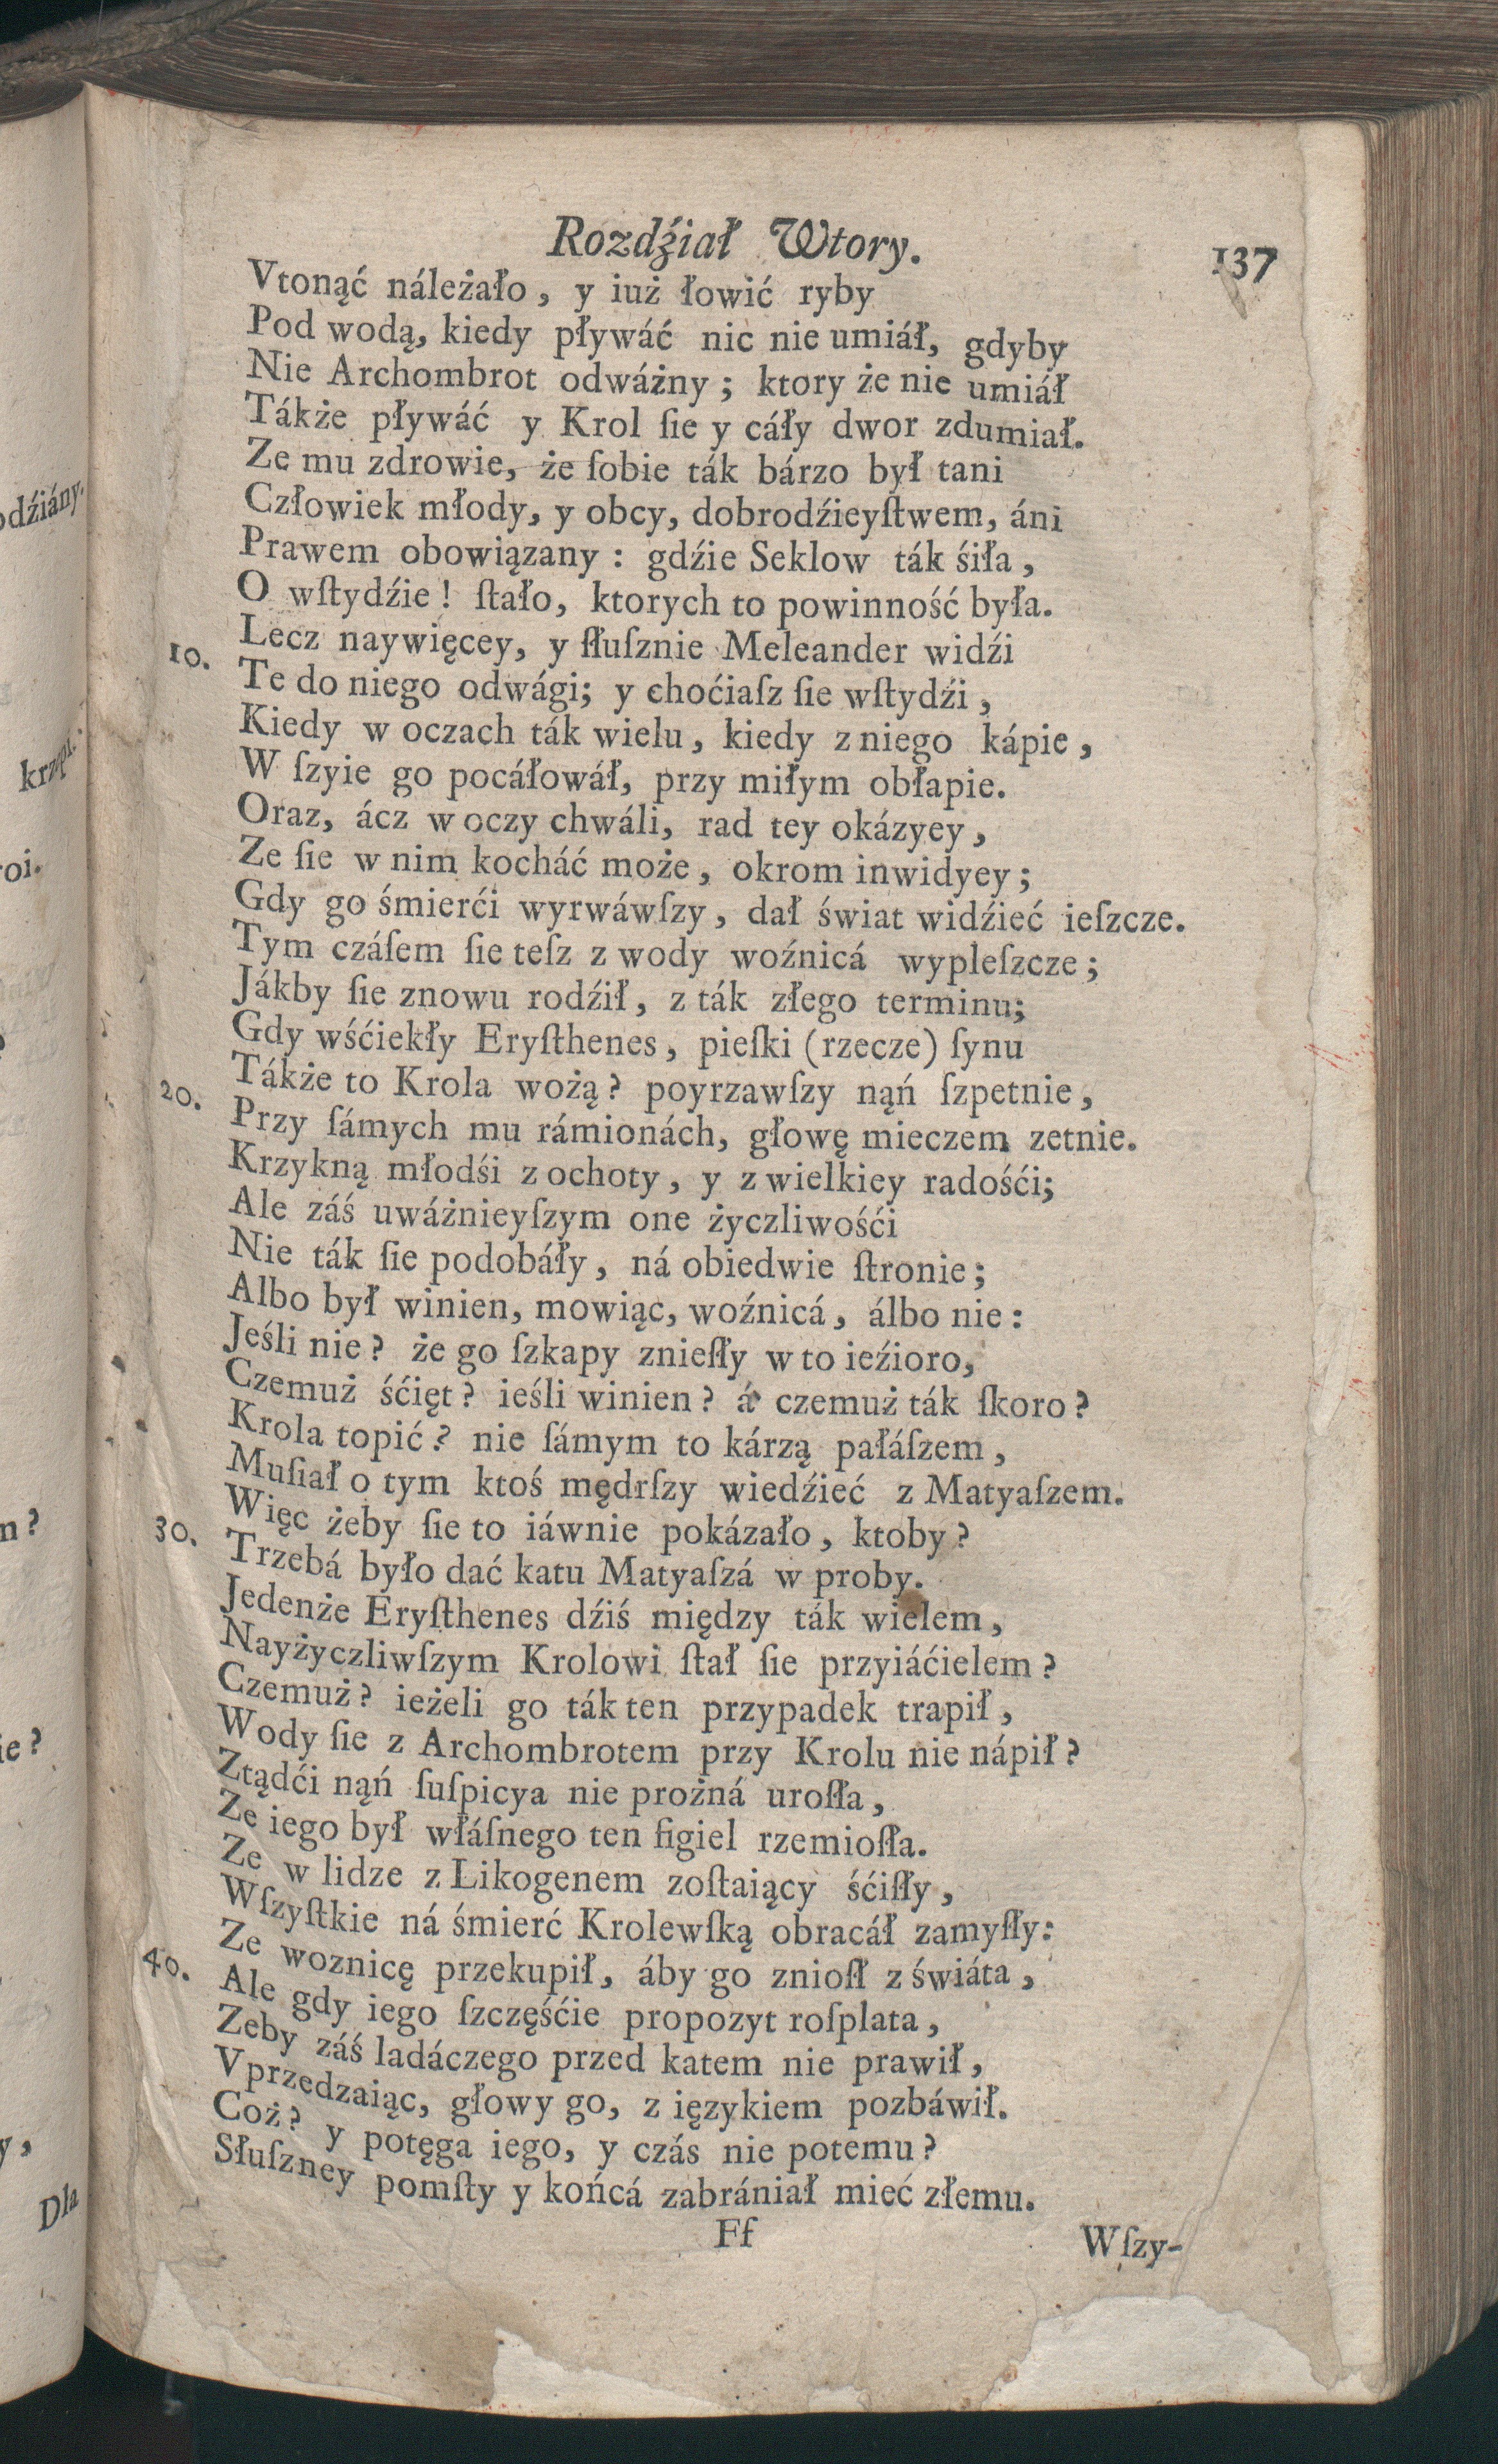 Rozdźiał Wtory.
137
Vtonąć náleżało, y iuż łowić ryby
Pod wodą, kiedy pływáć nic nie umiáł, gdyby
Nie Archombrot odwáżny; ktory że nie umiáł
Tákże pływáć y Krol ſie y cáły dwor zdumiał.
Ze mu zdrowie, że ſobie ták bárzo był tani
Człowiek młody, y obcy, dobrodźieyſtwem, áni
Prawem obowiązany: gdźie Seklow ták śiła,
O wſtydźie! ſtało, ktorych to powinność była.
Lecz naywięcey, y ſłuſznie Meleander widźi
10. Te do niego odwági; y choćiaſz ſie wſtydźi,
Kiedy w oczach ták wielu, kiedy z niego kápie,
W ſzyie go pocáłowáł, przy miłym obłapie.
Oraz, ácz w oczy chwáli, rad tey okázyey,
Ze ſie w nim kocháć może, okrom inwidyey;
Gdy go śmierći wyrwáwſzy, dał świat widźieć ieſzcze.
Tym czáſem ſie teſz z wody woźnicá wypleſzcze;
Jákby ſie znowu rodźił, z ták złego terminu;
Gdy wśćiekły Eryſthenes, pieſki (rzecze) ſynu
Tákże to Krola wożą? poyrzawſzy nąń ſzpetnie,
20. Przy ſámych mu rámionách, głowę mieczem zetnie.
Krzykną młodśi z ochoty, y z wielkiey radośći;
Ale záś uwáżnieyſzym one życzliwośći
Nie ták ſie podobáły, ná obiedwie ſtronie;
Albo był winien, mowiąc, woźnicá, álbo nie:
Jeśli nie? że go ſzkapy znieſły w to ieźioro,
Czemuż śćięt? ieśli winien? á czemuż ták ſkoro?
Krola topić? nie ſámym to kárzą pałáſzem,
Muſiał o tym ktoś mędrſzy wiedźieć z Matyaſzem.
Więc żeby ſie to iáwnie pokázało, ktoby?
30. Trzebá było dać katu Matyaſzá w proby.
Jedenże Eryſthenes dźiś między ták wielem,
Nayżyczliwſzym Krolowi ſtał ſie przyiáćielem?
Czemuż? ieżeli go ták ten przypadek trapił,
Wody ſie z Archombrotem przy Krolu nie nápił?
Ztądći nąń ſuſpicya nie prożná uroſła,
Ze iego był włáſnego ten figiel rzemioſła.
Ze w lidze z Likogenem zoſtaiący śćiſły,
Wſzyſtkie ná śmierć Krolewſką obracáł zamyſły:
Ze woznicę przekupił, áby go znioſł z świáta,
40. Ale gdy iego ſzczęśćie propozyt roſplata,
Zeby záś ladáczego przed katem nie prawił,
Vprzedzaiąc, głowy go, z ięzykiem pozbáwił.
Coż? y potęga iego, y czás nie potemu?
Słuſzney pomſty y końcá zabrániał mieć złemu.
Ff
Wſzy-
odźiány.
oi.
n?
ie?
y,
Dla